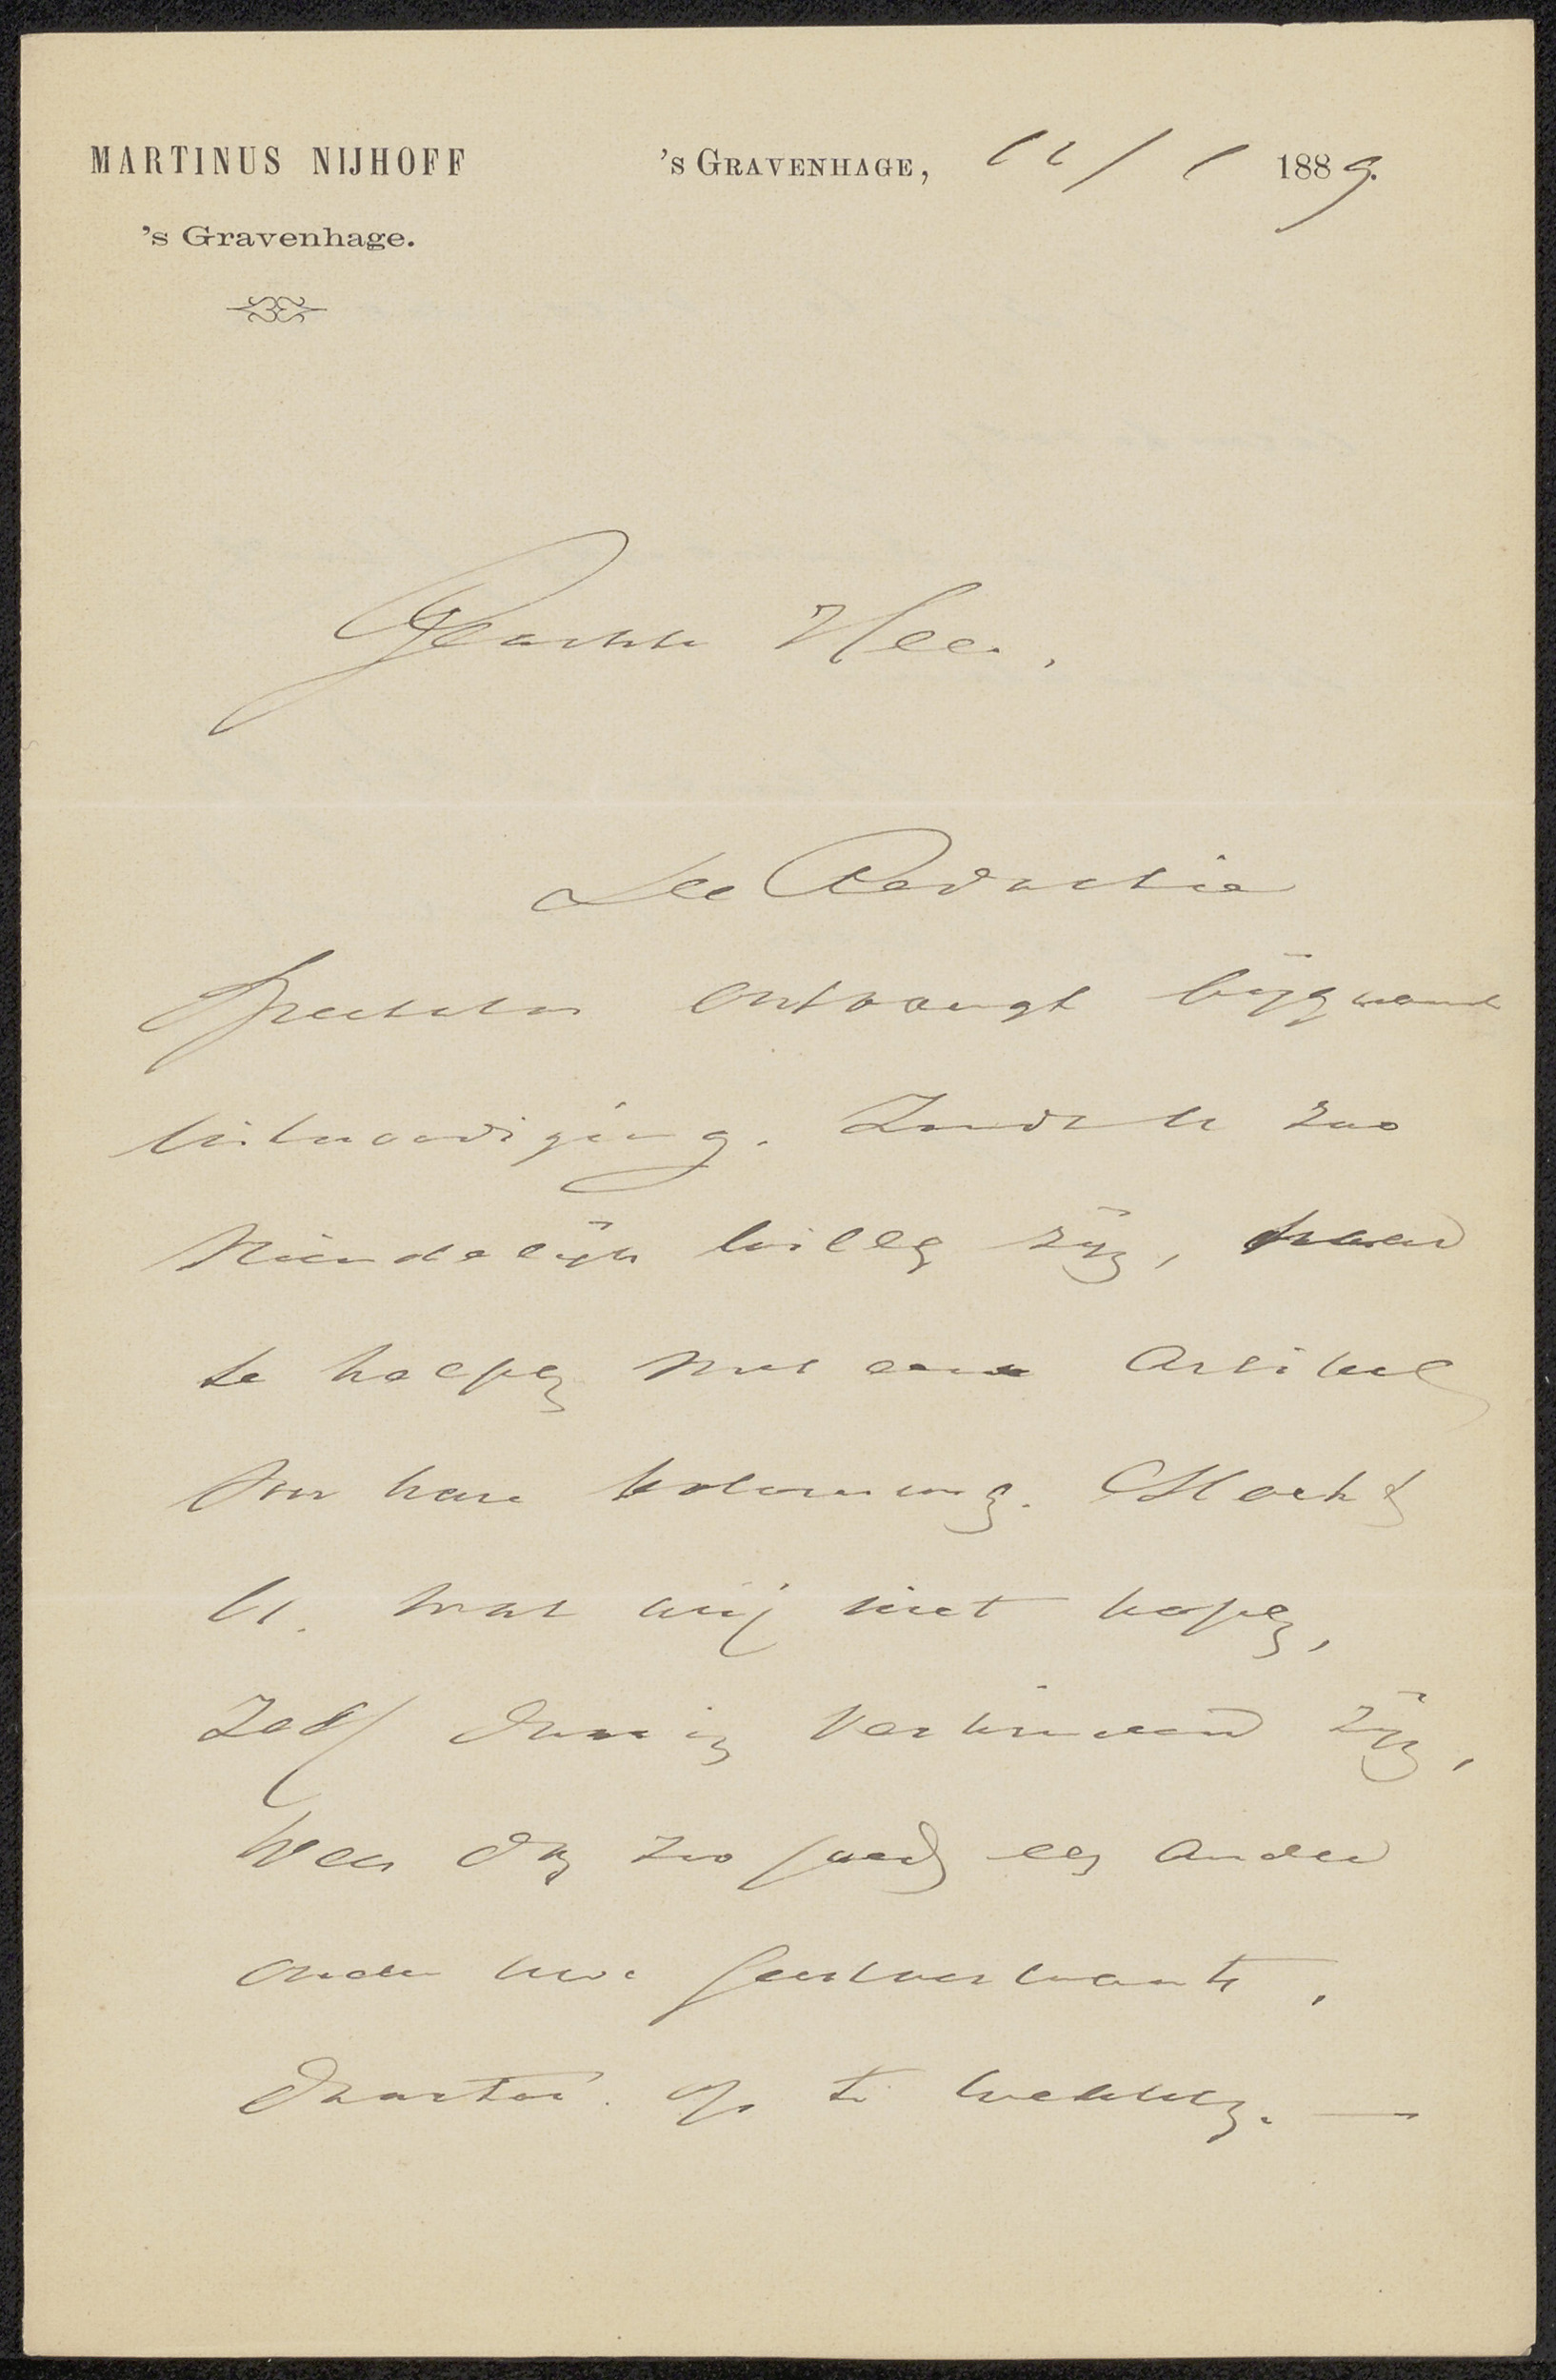 MARTINUS NIJHOFF
's GRAVENHAGE, 11/1 1889.
's Gravenhage.
Geachte Heer,
De Redactie
Spectator ontvangt bijgaande
uitnoodiging. Zoudt U zoo
vriendelijk willen zijn, haar
te helpen met een artikel
voor hare kolommen. Mocht
U, wat wij niet hopen,
zelf daarin verhinderd zijn,
wees dan zoo goed een ander
onder uwe geestverwanten,
daartoe op te wekken. —